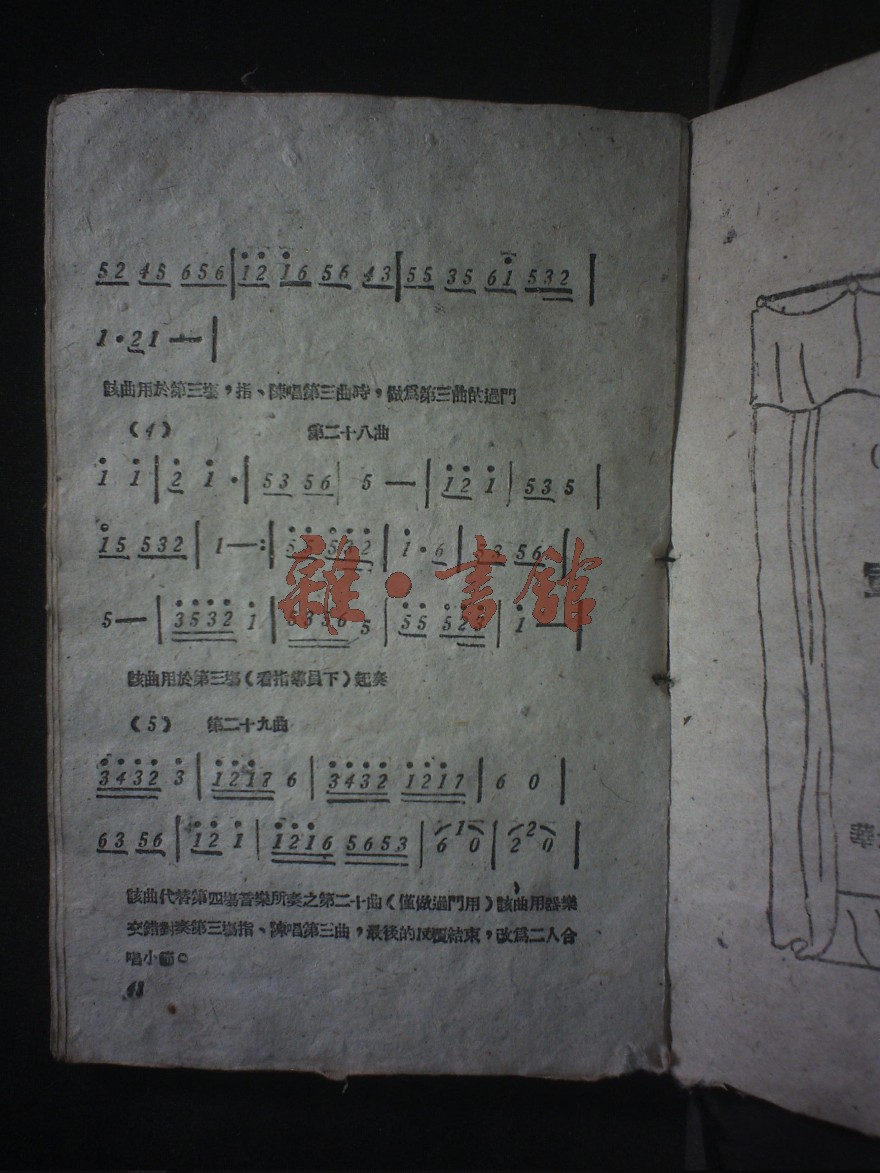 52 45 656 | i̇2̇ i̇6 56 43 | 55 35 6i̇ 532 |
1·21 — |
該曲用於第三塲，指、陳唱第三曲時，做爲第三曲的過門
(4) 第二十八曲
i̇ i̇ | 2̇ i̇· | 53 56 | 5 — | i̇2̇ i̇ | 53 5 |
i̇5 532 | 1 — :| 5̇5̇ 5̇3̇2̇ | i̇·6 | 53 56 |
5 — | 3̇5̇3̇2̇ i̇ | 5356 5 | 5̇5̇ 5̇2̇5̇ | i̇ — |
該曲用於第三塲（看指導員下）起奏
(5) 第二十九曲
3̇4̇3̇2̇ 3̇ | i̇2̇i̇7 6 | 3̇4̇3̇2̇ i̇2̇i̇7 | 6 0 |
63 56 | i̇2̇ i̇ | i̇2̇i̇6 5653 | 6 1 0 | 2 2 0 |
該曲代替第四塲音樂所奏之第二十曲（僅做過門用）該曲用器樂
交錯對奏第三塲指、陳唱第三曲，最後的反覆結束，改爲二人合
唱小節。
雜·書館
華